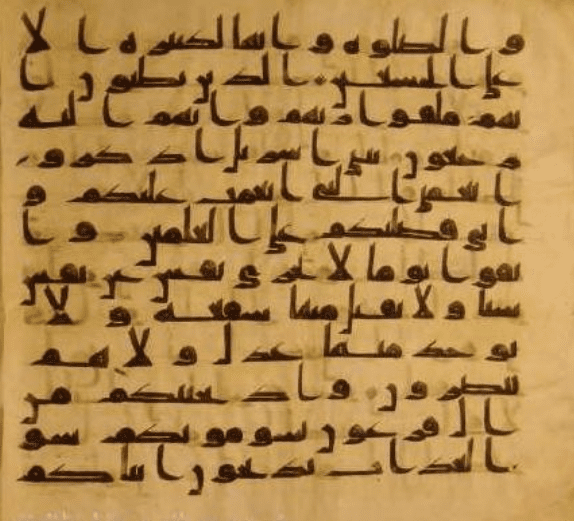 والصلوه وانها لكبيره الا
على الخشعين الذين يظنون ا
نهم ملقوا ربهم وانهم اليه
رجعون يبنى اسريل اذكرو
ا نعمتى التى انعمت عليكم و
انى فضلتكم على العلمين وا
تقوا يوما لا تجزى نفس عن نفس
شيا ولا يقبل منها شفعه ولا
يوخذ منها عدل ولا هم
ينصرون واذ نجينكم من
ال فرعون يسومونكم سو
العذاب يذبحون ابناكم